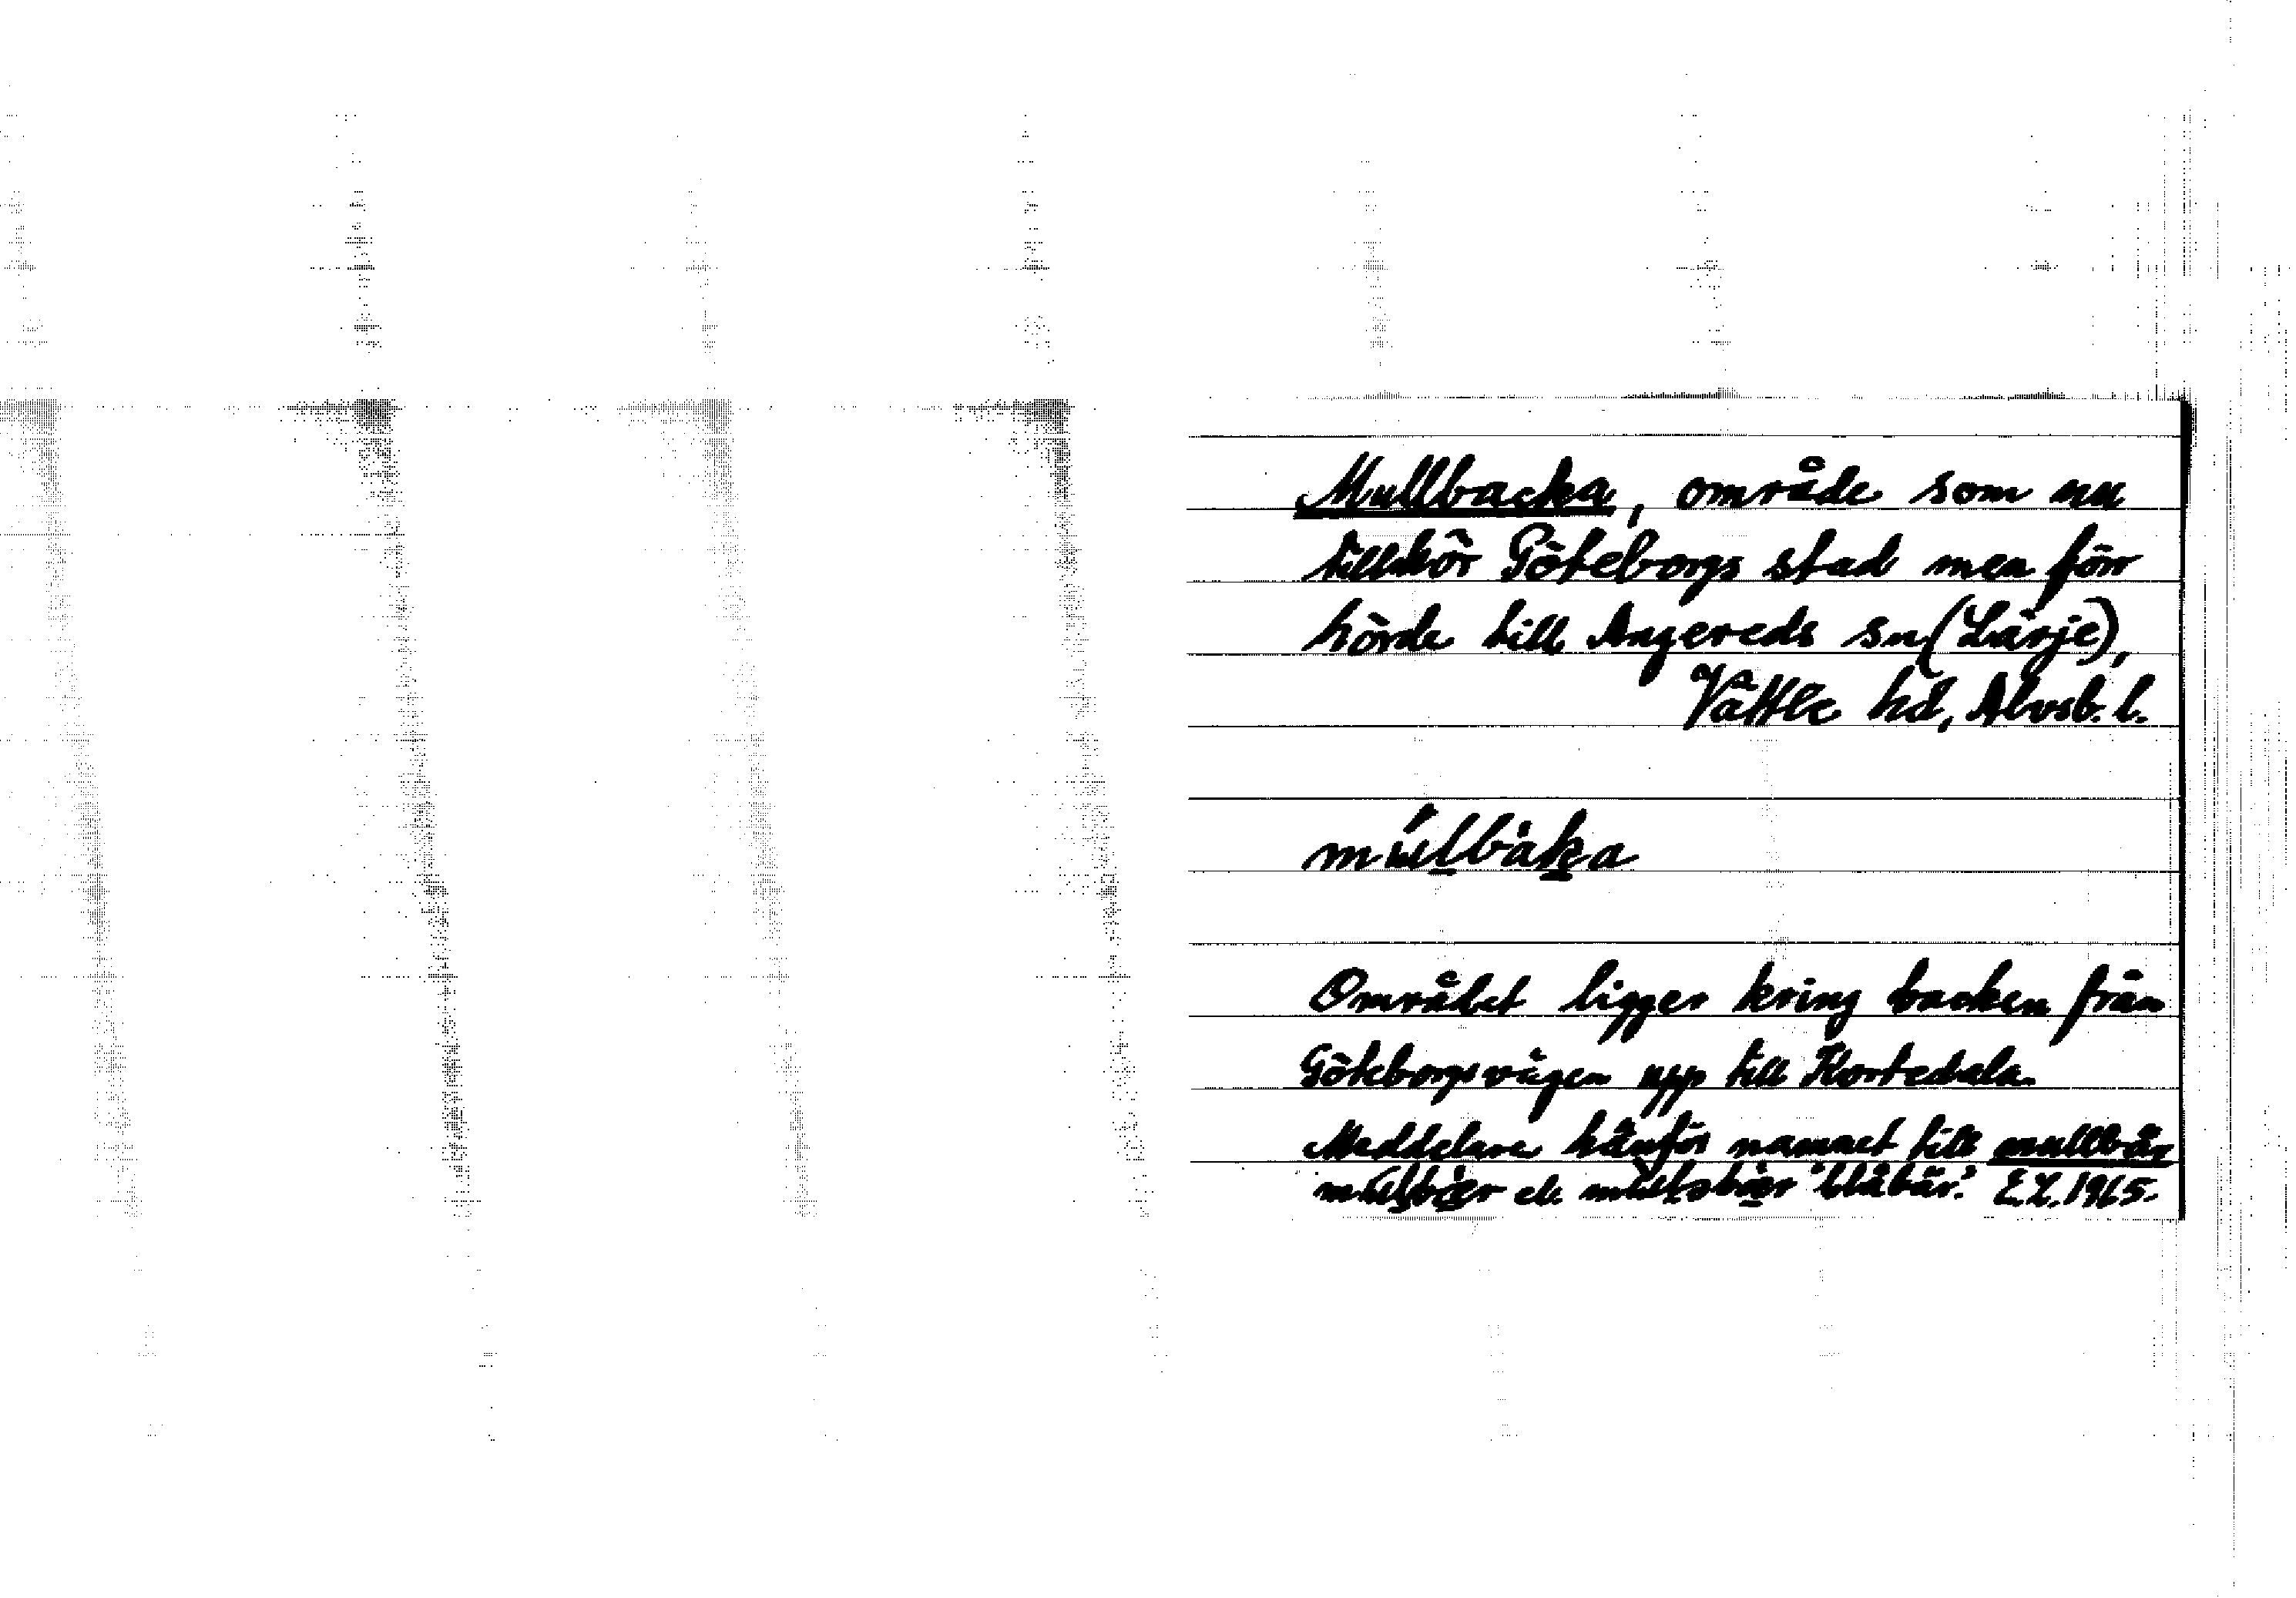 Mullbacka, område som nu
tillhör Göteborgs stad men förr
hörde till Angereds sn (Lärje),
Vättle hd, Älvsb. l.
múlbàka
Området ligger kring backen från
Göteborgsvägen upp till Kortedala.
Meddelare hänför namnet till mullbär
"blåbär". 1965.